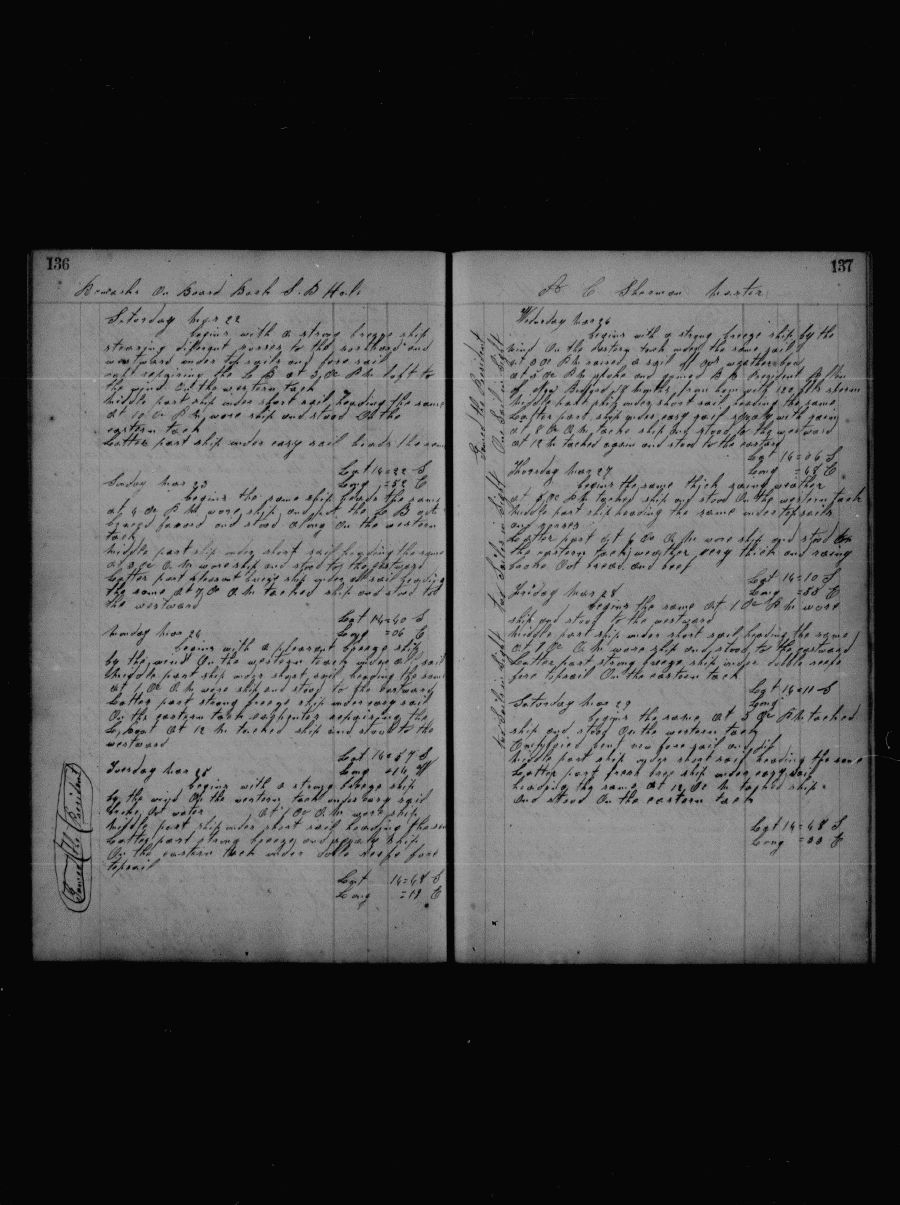 136
Remarks On Board Bark S. B Hale
Saturday Mar 22
begins with a strong breeze ship
steering different courses to the northward and
westward under topsails and fore sail
repairing the L B at 3 Oc P M luft to
the wind On the western tack
Middle part ship under short sail heading the same
at 10 Oc P M wore ship and stood On the
eastern tack
Latter part ship under easy sail heads the same
Lat 14=22 S
Long =52 E
Sunday Mar 23
begins the same ship heads the same
at 4 Oc P M wore ship and put the L B
braced forard and stood along On the western
tack
Middle part ship under short sail heading the same
at 3 Oc A M wore ship and stood to the eastward
Latter part pleasant breeze ship under all sail heading
the same at 7 Oc A M tacked ship and stood to
the westward
Lat 14=40 S
Long =06 E
Monday Mar 24
begins with a pleasant breeze ship
by the wind On the western tack under all sail
Middle part ship under short sail heading the same
at 1 Oc A M wore ship and stood to the eastward
Latter part strong breeze ship under easy sail
On the eastern tack repairing the
boat at 12 M tacked ship and stood to the
westward
Lat 14=57 S
Long =14 W
Tuesday Mar 25
begins with a strong breeze ship
by the wind On the western tack under easy sail
water at 1 Oc A M wore ship
Middle part ship under short sail heading the same
Latter part strong breeze and ship
On the eastern tack under reefs fore
topsail
Lat 14=48 S
Long =18 E
Gamed the President
137
A C Sherman Master
Wedsday Mar 26
begins with a strong breeze ship by the
wind On the western tack under the same sail
at 3 Oc P M raised a sail off Our weather bow
at 5 Oc P M spoke and gamed B K President
of New Bedford 18 months from home with 120 bbls sperm
Middle part ship under short sail heading the same
Latter part ship under easy sail with rain
at 8 Oc A M tacked ship and stood to the westward
at 12 M tacked again and stood to the eastard
Lat 14=06 S
Long =48 E
Thursday Mar 27
begins the same thick rainy weather
at Oc P M tacked ship and stood On the western tack
Middle part ship heading the same under topsails
and courses
Latter part at 6 Oc A M wore ship and stood On
the eastern tack weather very thick and rainy
broke Out bread and beef
Lat 14=10 S
Long =55 E
Friday Mar 28
begins the same at 1 Oc P M wore
ship and stood to the westward
Middle part ship under short sail heading the same
at 1 Oc A M wore ship and stood to the eastward
Latter part strong breeze ship under double reefs
fore topsail On the eastern tack
Lat 14=11 S
Long
Saturday Mar 29
begins the same at 5 Oc P M tacked
ship and stood On the western tack
bent new fore sail and jib
Middle part ship under short sail heading the same
Latter part fresh breeze ship under easy sail
heading the same at 12 Oc M tacked ship
and stood On the eastern tack
Lat 14=48 S
Long =33 E
Gamed the President
One Sail in Sight
two Sails in Sight
two Sails in Sight